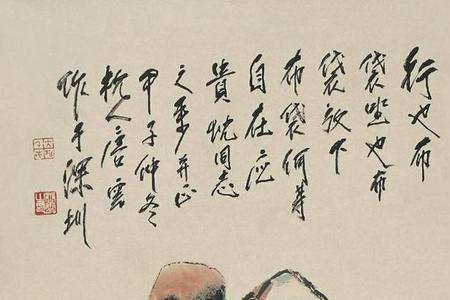 行也布
袋坐也布
袋放下
布袋何等
自在应
貴忱同志
之并正
甲子仲冬
杭人唐雲
作于深圳